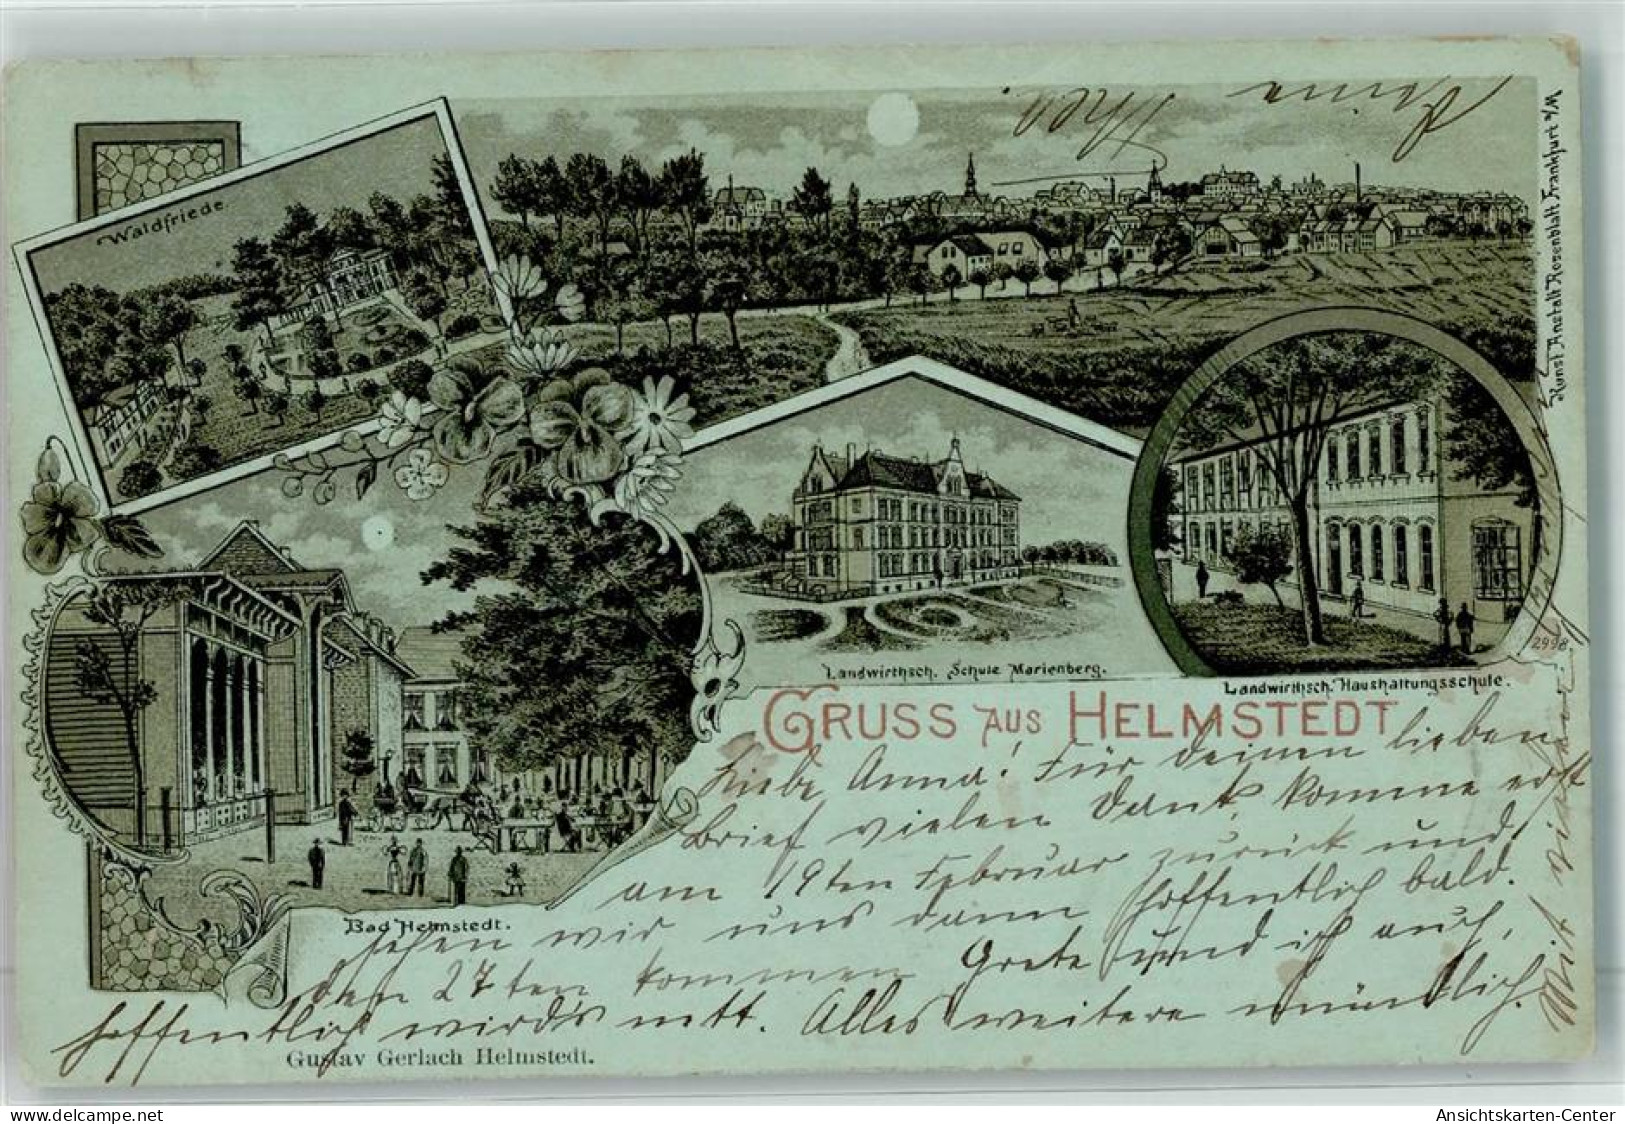 Waldfriede.
Kunst Anstalt Rosenblatt Frankfurt a/M
Landwirthsch. Schule Marienberg.
Landwirthsch. Haushaltungsschule.
2998
Bad Helmstedt.
GRUSS AUS HELMSTEDT
Liebe Anna! Für Deinen lieben
Brief vielen Dank, komme erst
am 19ten Februar zurück und
sehen wir uns dann hoffentlich bald.
den 27ten kommen Grete und ich auch,
hoffentlich wird's nett. Alles weitere mündlich.
Mit vielen
Deine
Gustav Gerlach Helmstedt.
Ansichtskarten-Center
www.delcampe.net